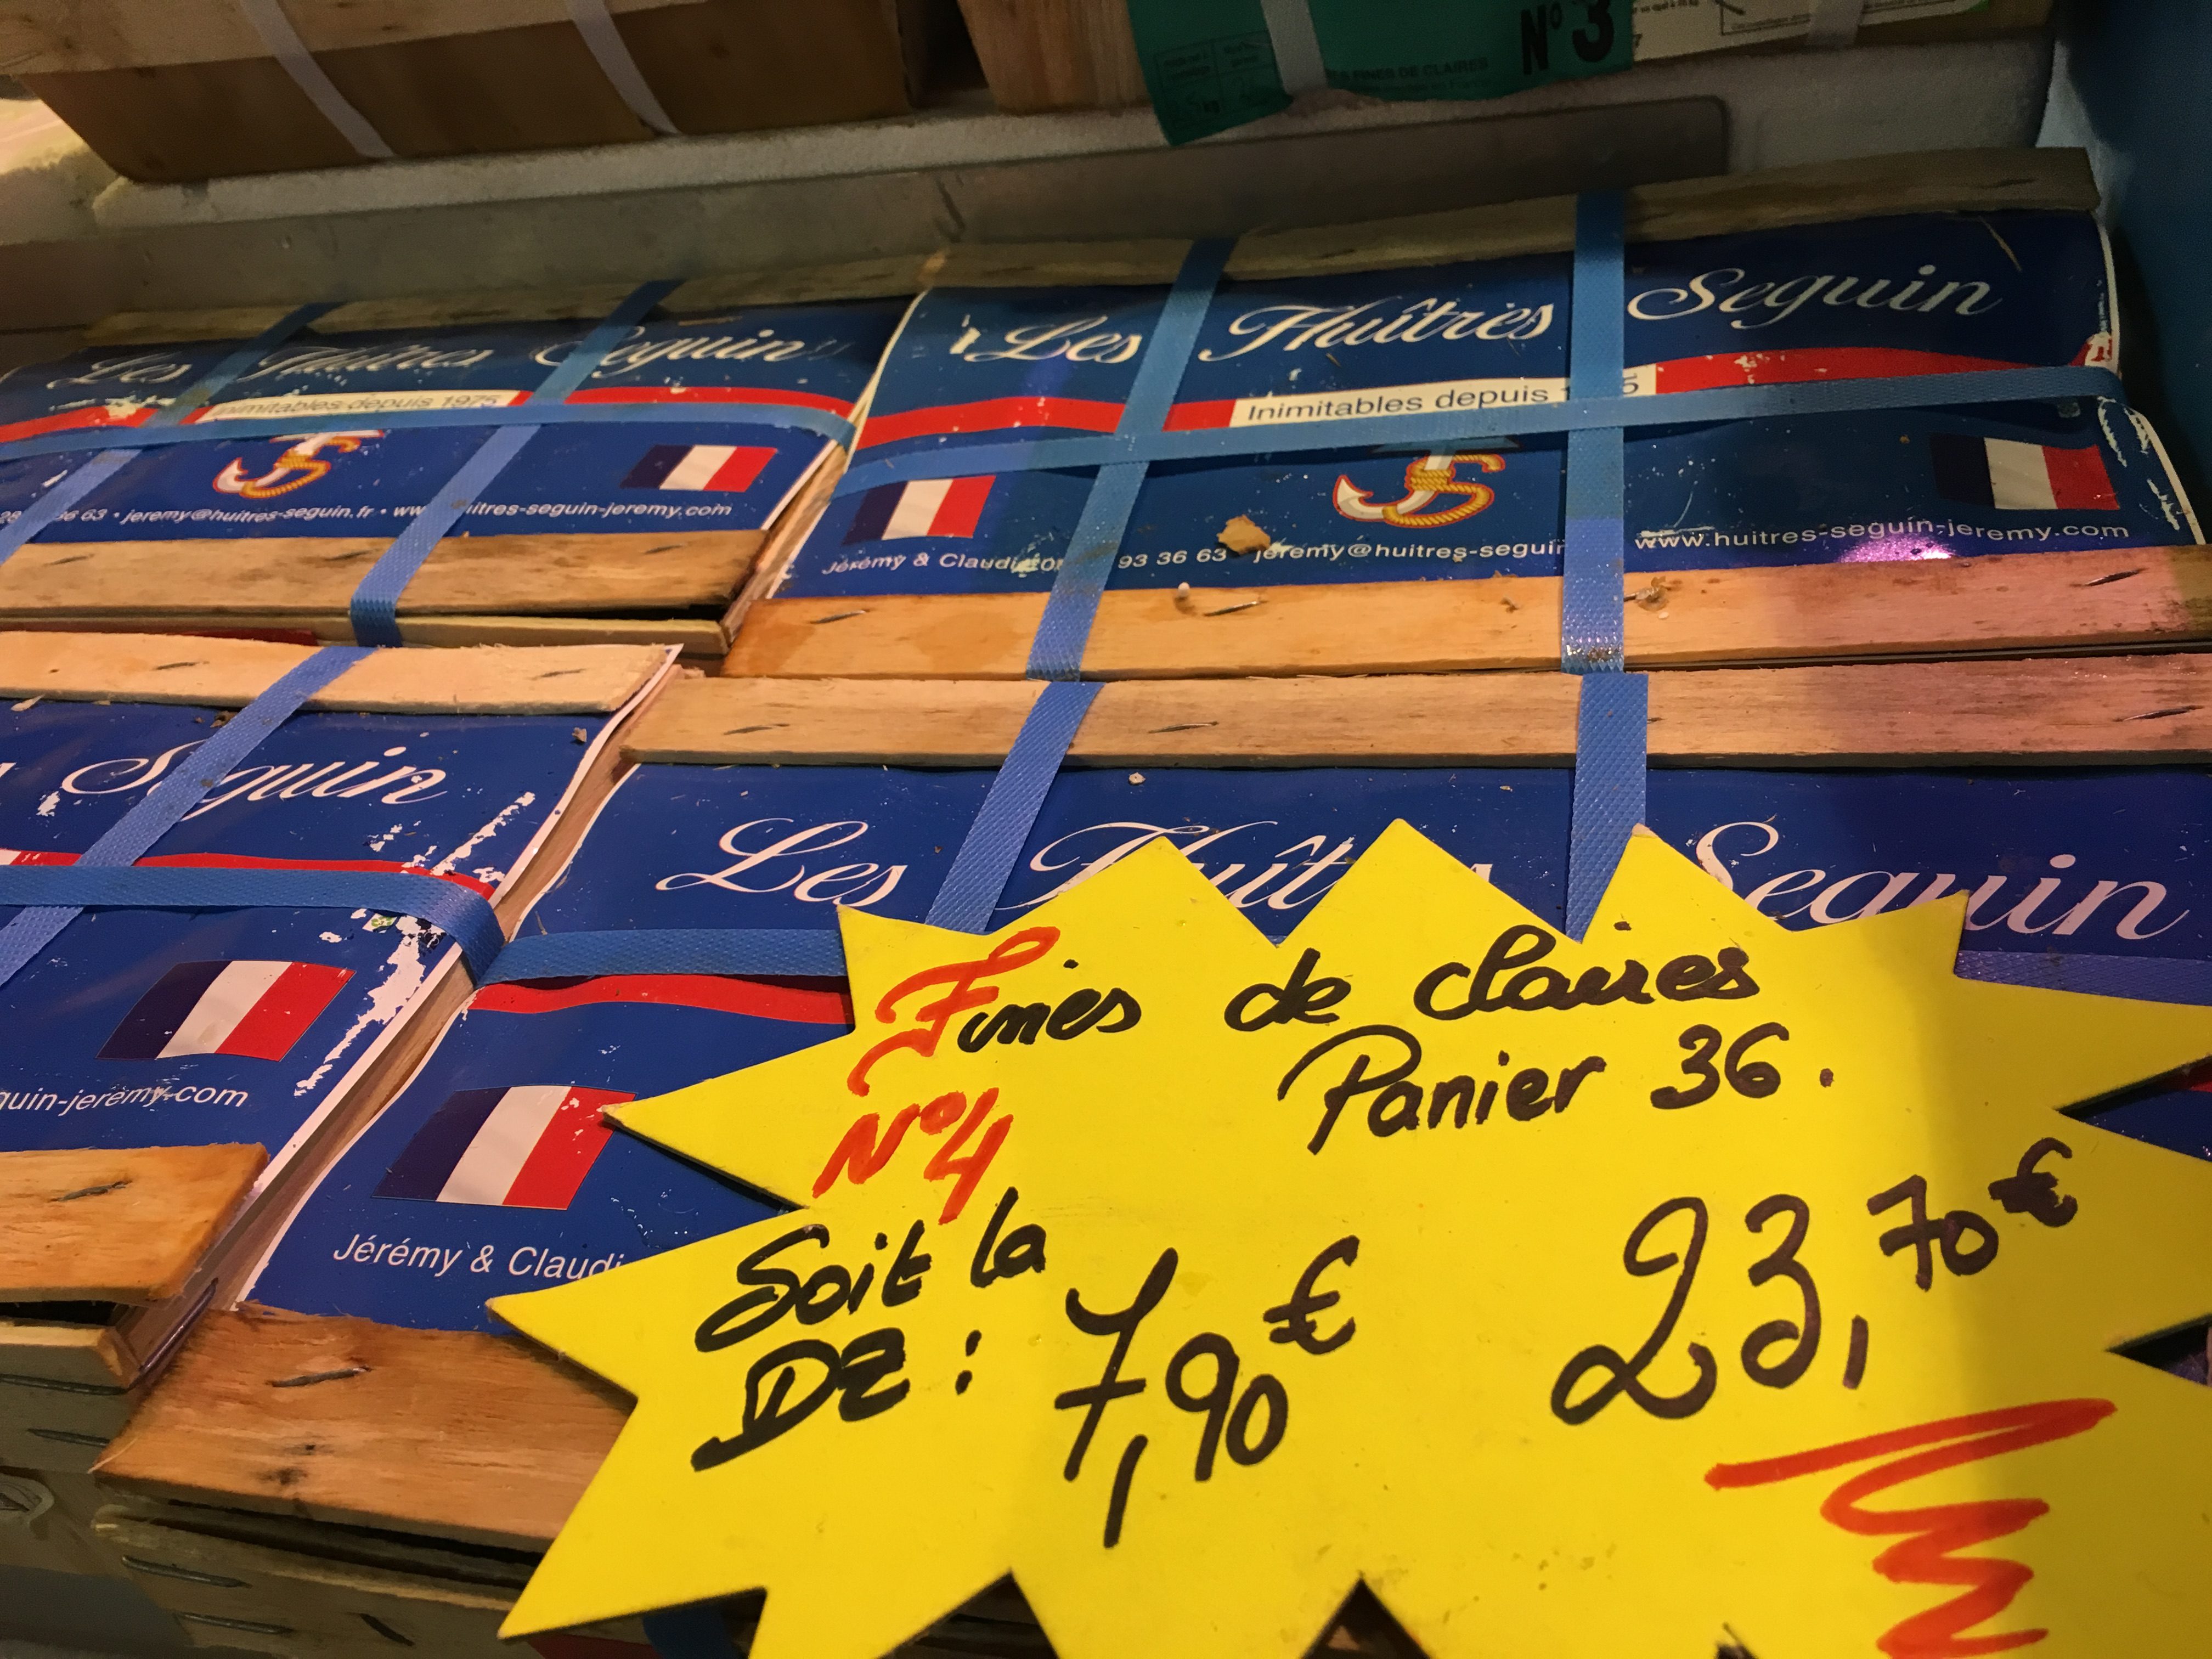 N° 3
FINES DE CLAIRES
Les Huîtres Seguin
Inimitables depuis 1975
36 63 • jeremy@huitres-seguin.fr • www.huitres-seguin-jeremy.com
Les Huîtres Seguin
Inimitables depuis 1975
Jérémy & Claudi 93 36 63 jeremy@huitres-seguin www.huitres-seguin-jeremy.com
Seguin
guin-jeremy.com
Les Huîtres Seguin
Jérémy & Claudi
Fines de claires
N°4 Panier 36.
Soit la
DZ: 7,90€ 23,70€